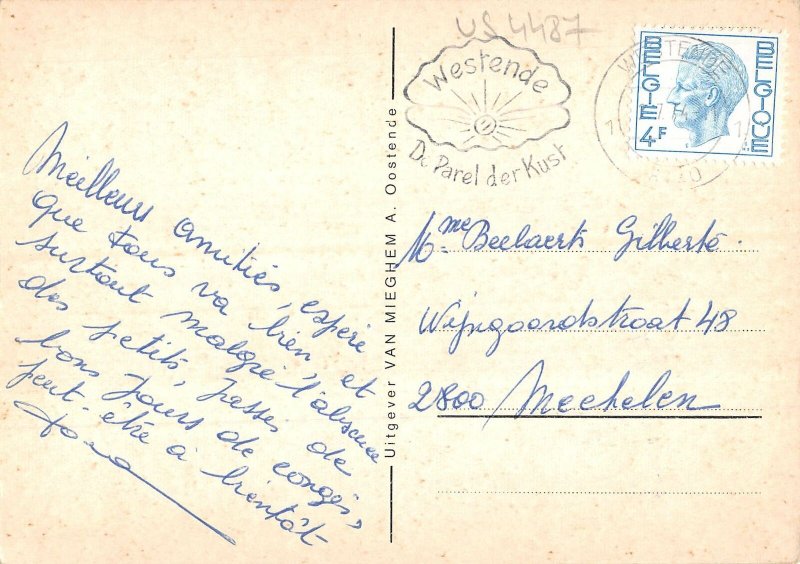 US 4487
Westende
De Parel der Kust
WESTENDE
BELGIE
4F
BELGIQUE
Meilleurs amitiés, espère
que tous va bien, et
surtout malgré l'absence
des petits, passés de
bons jours de congés,
peut-être à bientôt
Uitgever VAN MIEGHEM A. Oostende
Mme Beelaerts Gilberte.
Wijngaardstraat 48
2800 Mechelen